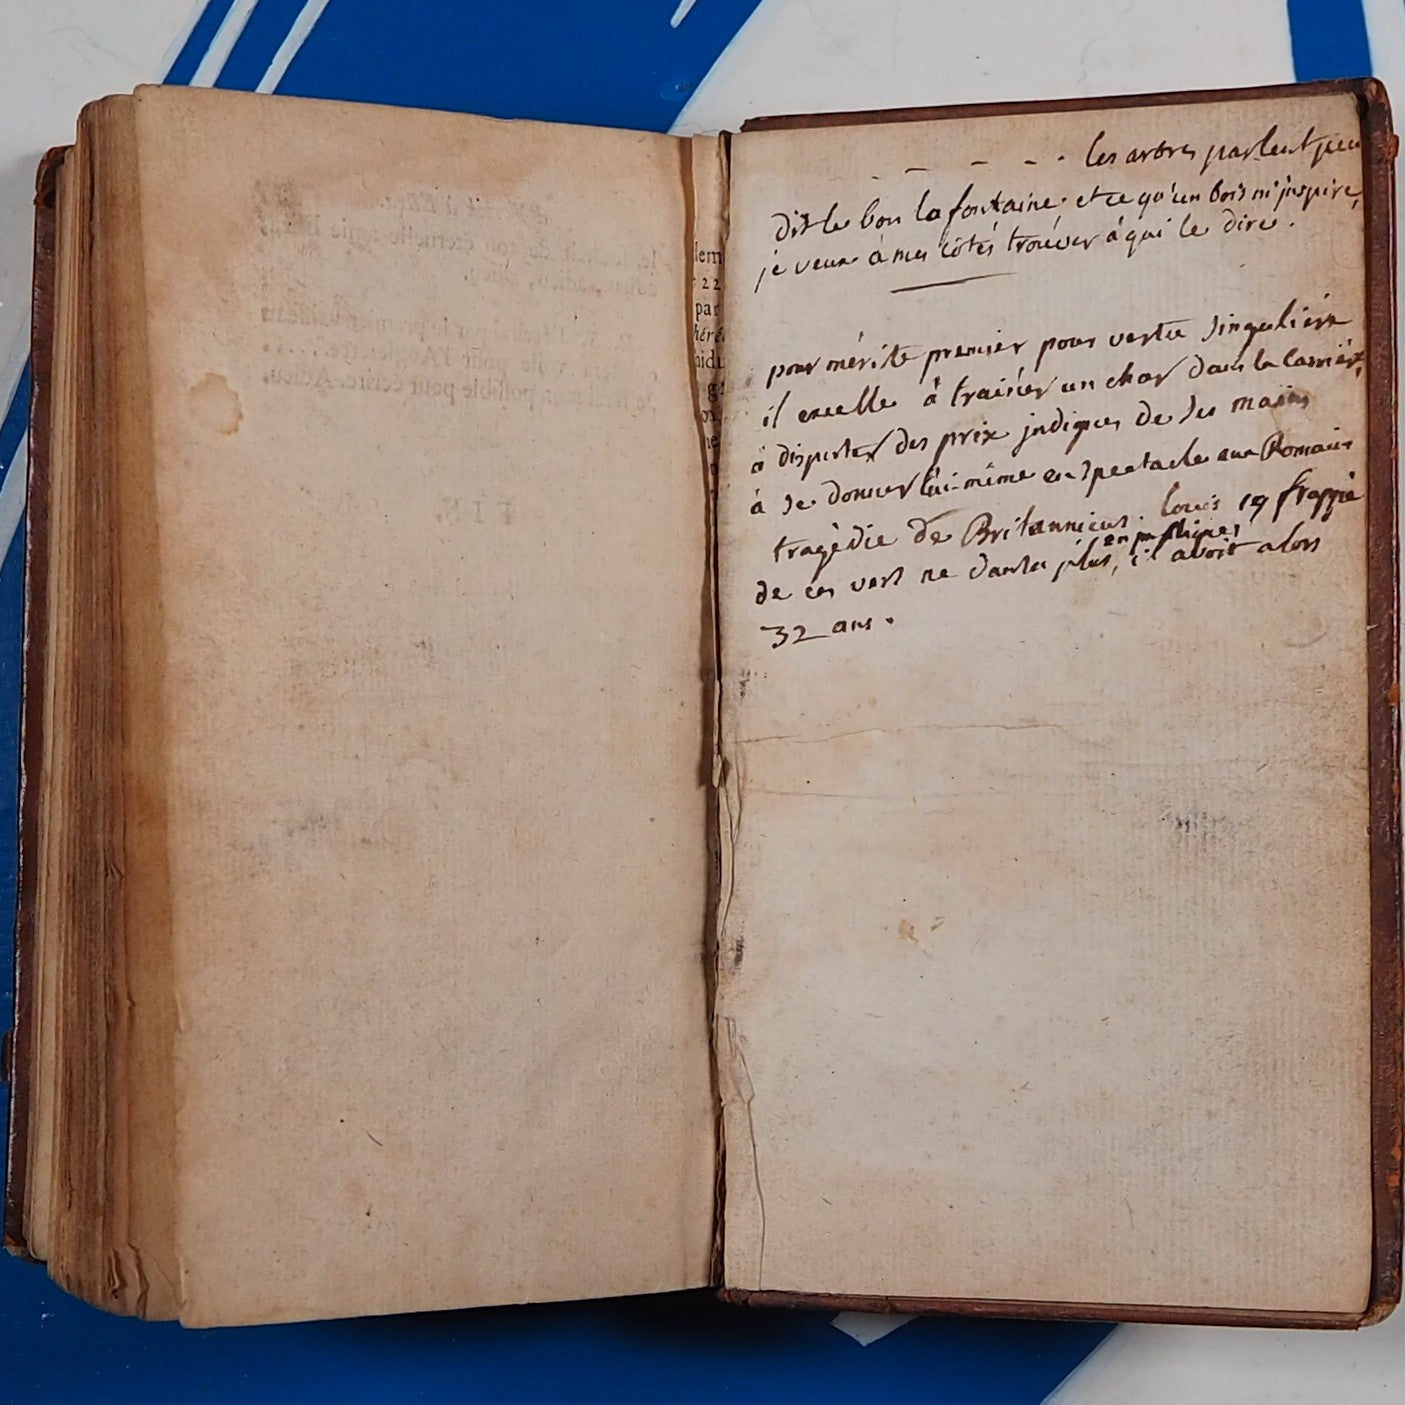 lem
22
par
héré
aidu
- - - - . les arbres parlent peu
dit le bon la fontaine et ce qu'un bois m'inspire,
je veux à mes côtés trouver à qui le dire.
pour mérite premier pour vertu singuliere
il excelle à trainer un char dans la carriere,
à disputer des prix indignes de ses mains
à se donner lui-même en spectacle aux Romains
tragédie de Britannicus. louis 14 frappé
en publique,
de ces vers ne dansa plus, il avoit alors
32 ans.